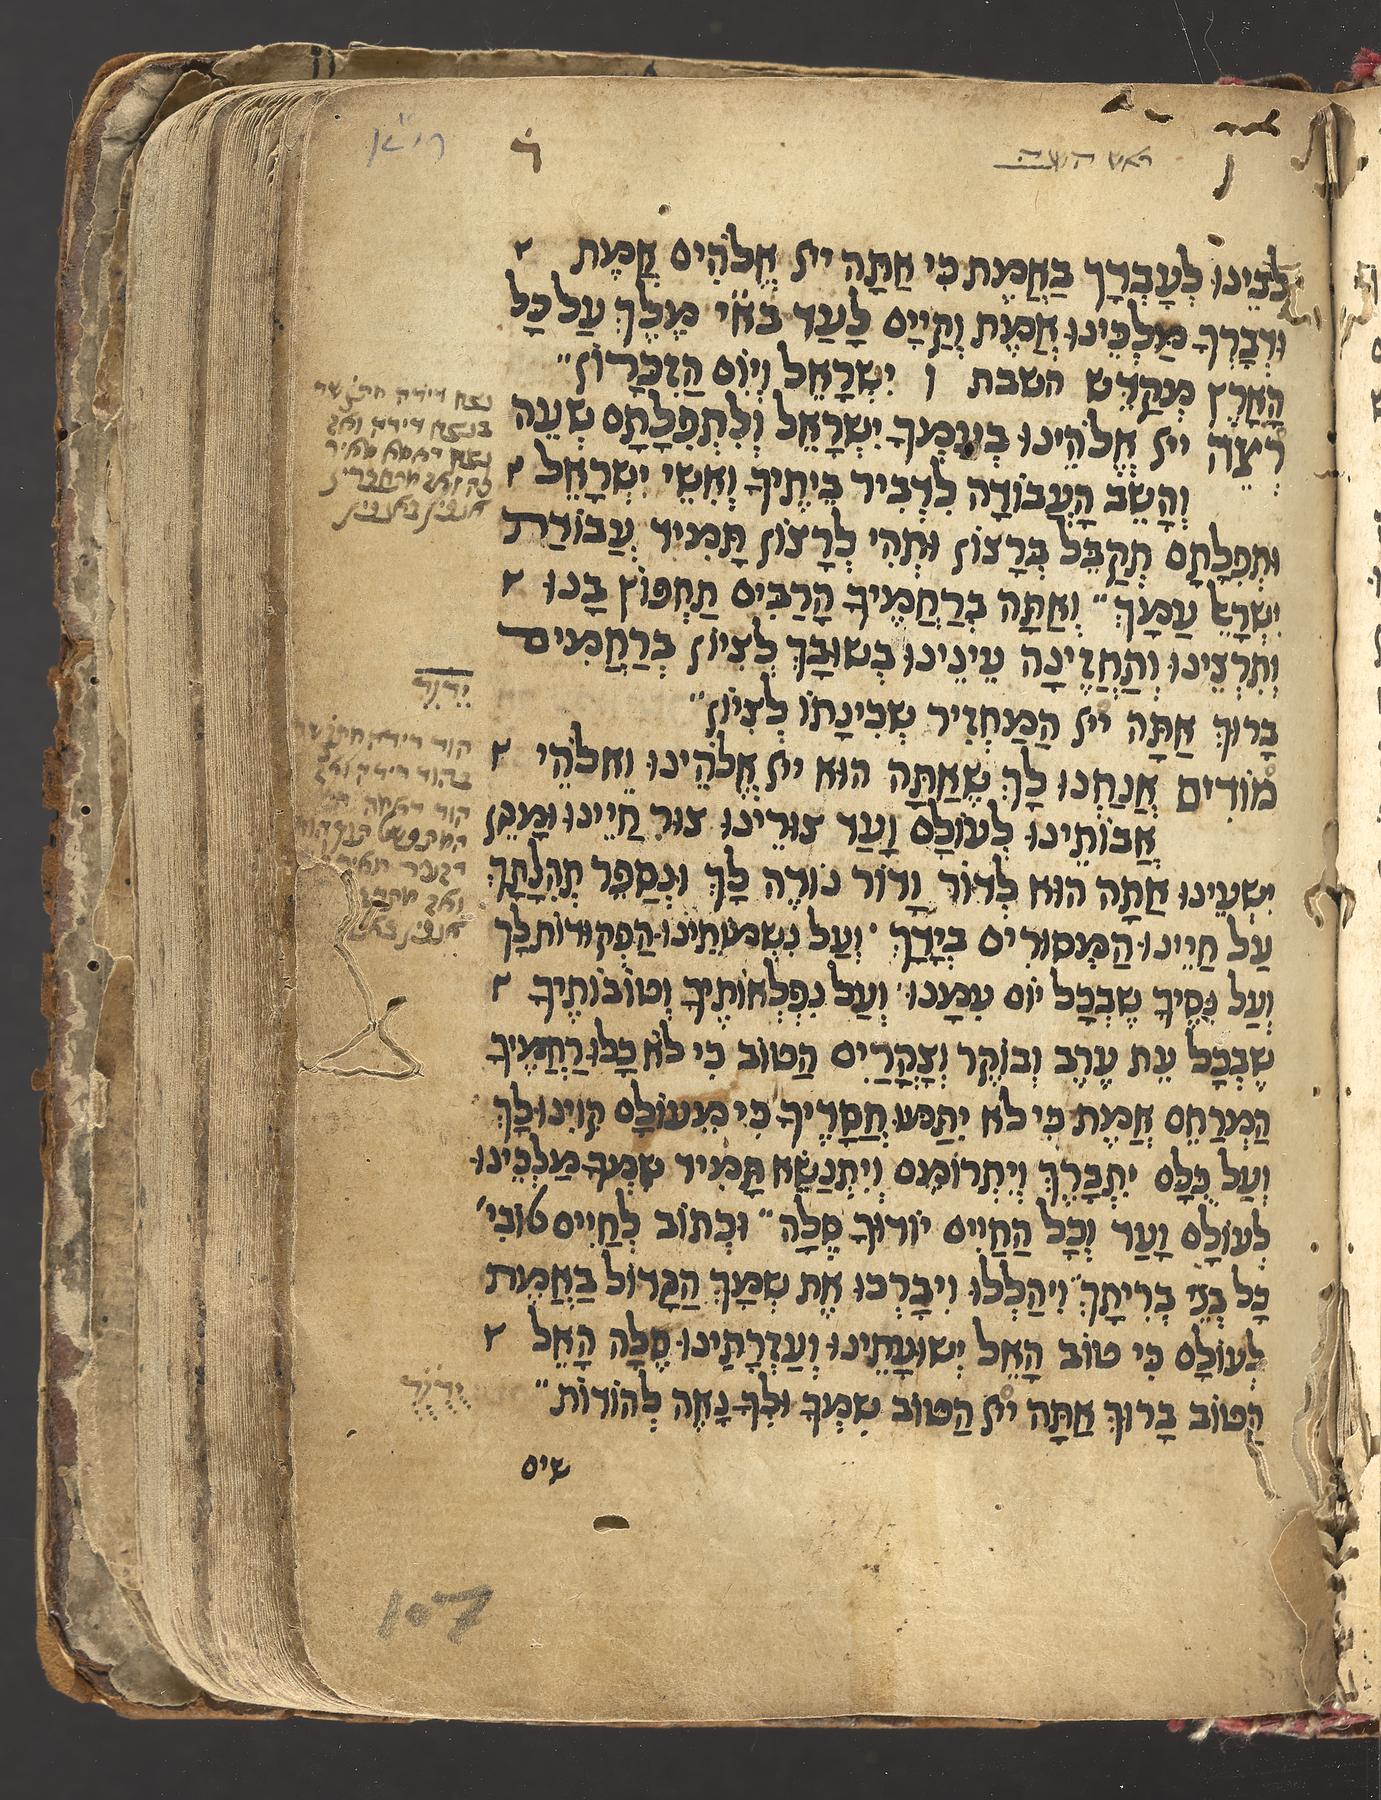 ראש השנה
ד
לבֵינוּ לְעָבְדָך בַאֲמֶת כִי אַתָה ייי אֱלֹהִים אֱמֶת
וּדְבָרְךָ מַלְכֵינוּ אֱמֶת וְקַיָים לָעַד בא״י מֶלֶךְ עַל כָל
הָאָרֶץ מְקַדֵש השבת ו יִשְרָאֵל וְיוֹם הַזִכָרוֹן״
רְצֵה ייי אֱלֹהֵינוּ בְעַמְךָ יִשְרָאֵל וְלִתְפִלָתָם שְעֵה
וְהָשֵב הָעֲבוֹדָה לִדְבִיר בֵיתֶיךָ וְאִשֵי יִשְרָאֵל
וּתְפִלָתָם תְקַבֵל בְרָצוֹן וּתְהִי לְרָצוֹן תָמִיד עֲבוֹדַת
יִשְרָאֵל עַמָךְ״ וְאַתָה בְרַחֲמֶיךָ הָרַבִים תַחְפּוֹץ בָנוּ
וְתִרְצֵינוּ וְתַחֲזֶינָה עֵינֵינוּ בְשוּבָךְ לְצִיוֹן בְרַחֲמִים
בָרוּךְ אַתָה ייי הַמַחְזִיר שְכִינָתוֹ לְצִיוֹן״
מוֹדִים אֲנַחְנוּ לָךְ שֶאַתָה הוּא ייי אֱלֹהֵינוּ וֵאלֹהֵי
אֲבוֹתֵינוּ לְעוֹלָם וָעַד צוּרֵינוּ צוּר חַיֵינוּ וּמָגֵן
יִשְעֵינוּ אַתָה הוּא לְדוֹר וָדוֹר נוֹדֶה לָךְ וּנְסַפֵר תְהִלָתָךְ
עַל חַיֵינוּ הַמְסוּרִים בְיָדָךְ וְעַל נִשְמתֵינוּ הַפְקוּדוֹת לָךְ
וְעַל נִסֶיךָ שֶבְכָל יוֹם עִמָנוּ וְעַל נִפְלְאוֹתֶיךָ וְטוֹבוֹתֶיךָ
שֶבְכָל עֵת עֶרֶב וְבוֹקֶר וְצָהֳרַיִם הַטוֹב כִי לֹא כָלוּ רַחֲמֶיךָ
הַמְרַחֵם אֱמֶת כִי לא יִתַמּוּ חֲסָדֶיךָ כִי מֵעוֹלָם קִוִינוּ לָךְ
וְעַל כֻלָם יִתְבָרֵךְ וְיִתְרוֹמַם וְיִתְנַשֵא תָמִיד שִמְךָ מַלְכֵינוּ
לְעוֹלָם וָעַד וְכָל הַחַיִים יוֹדוּךָ סֶלָה״ וּכְתוֹב לְחַיִים טוֹבִי׳
כָל בְנֵי בְרִיתָךְ וִיהַלְלוּ וִיבָרְכוּ אֶת שְמָךְ הַגָדוֹל בַאֲמֶת
לְעוֹלָם כִי טוֹב הָאֵל יְשוּעָתֵינוּ וְעֶזְרָתֵינוּ סֶלָה הָאֵל
הַטוֹב בָרוּךְ אַתָה ייי הַטוֹב שִמְךָ וּלְךָ נָאֶה לְהוֹדוֹת״
שים
107